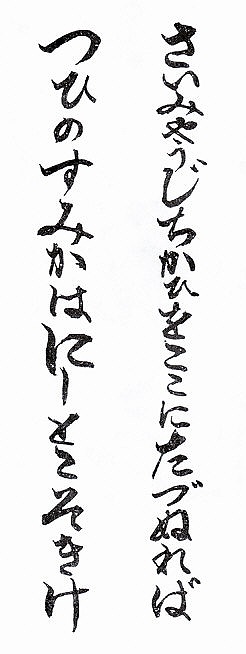 さいみやうじちかひをここにたづぬれば
つひのすみかはにしとこそきけ